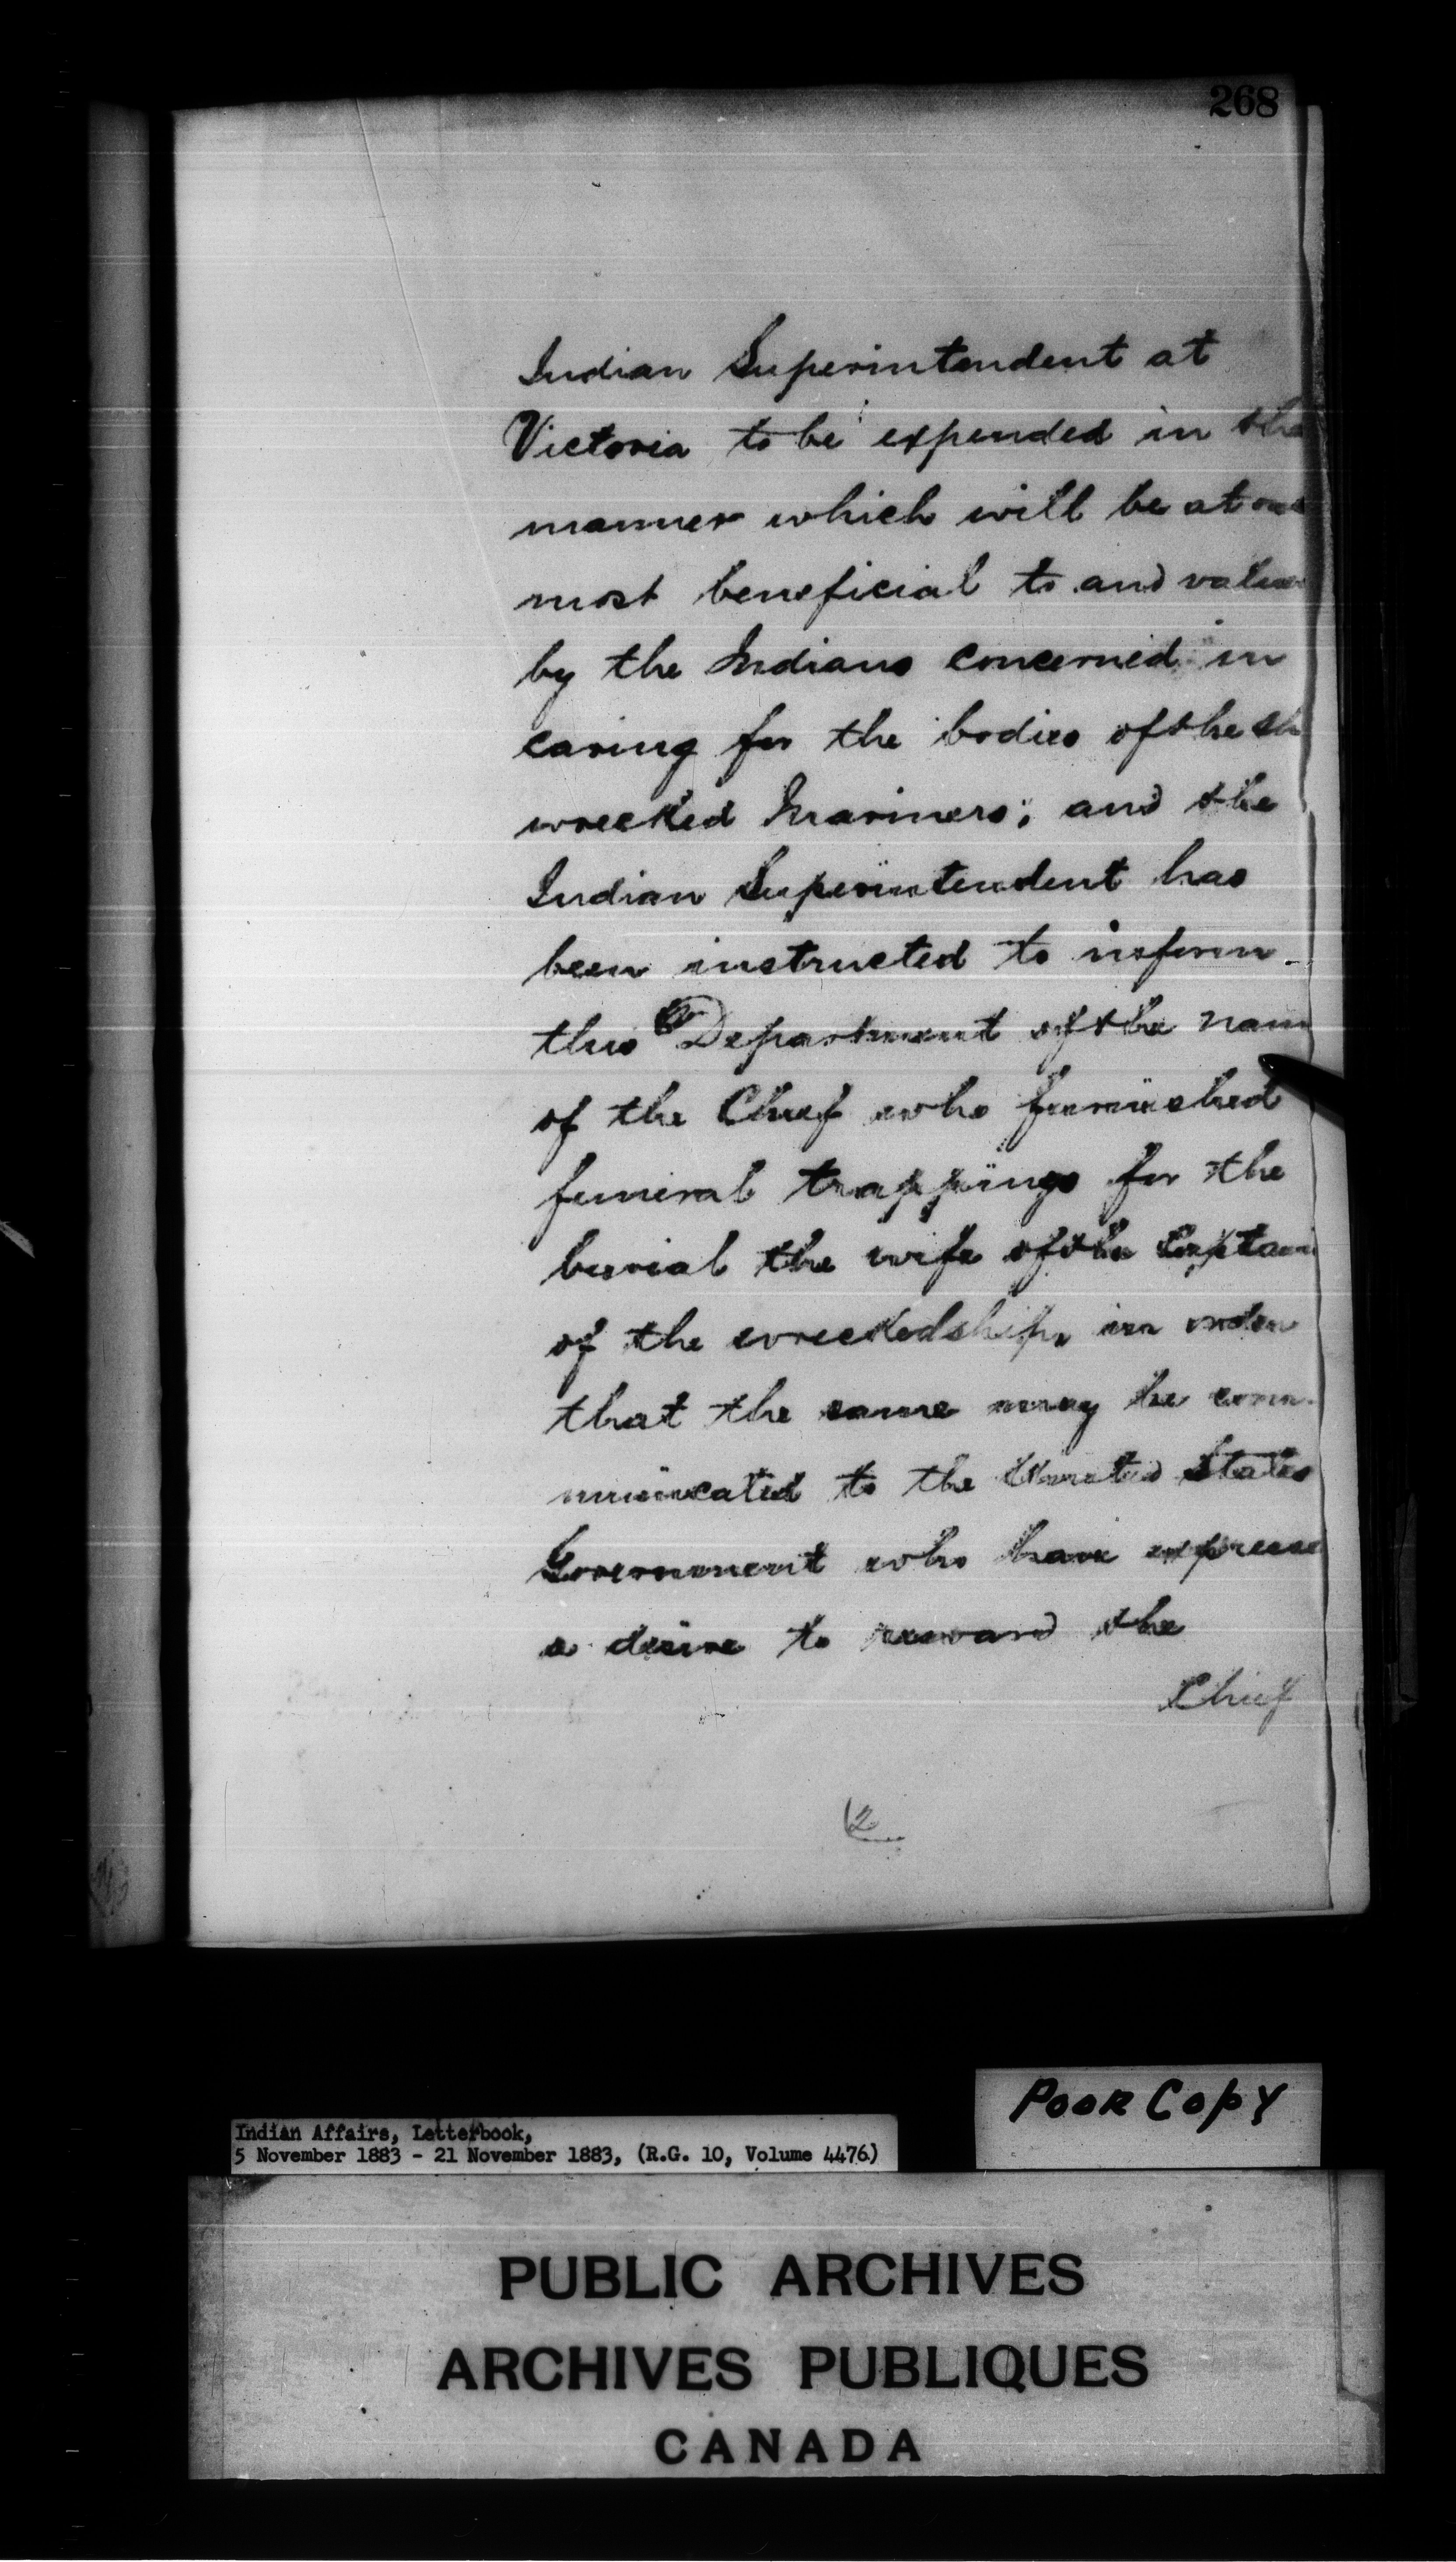 268
Indian Superintendent at
Victoria to be expended in the
manner which will be at once
most beneficial to and value
by the Indians concerned in
caring for the bodies of the sh
wrecked Mariners; and the
Indian Superintendent has
been instructed to inform
this Department of the nam
of the Chief who furnished
funeral trappings for the
burial the wife of the Captain
of the wrecked ship, in order
that the same may be com-
municated to the United States
Government who have express
a desire to reward the
Chief
2
POOR COPY
Indian Affairs, Letterbook,
5 November 1883 - 21 November 1883, (R.G. 10, Volume 4476)
PUBLIC ARCHIVES
ARCHIVES PUBLIQUES
CANADA